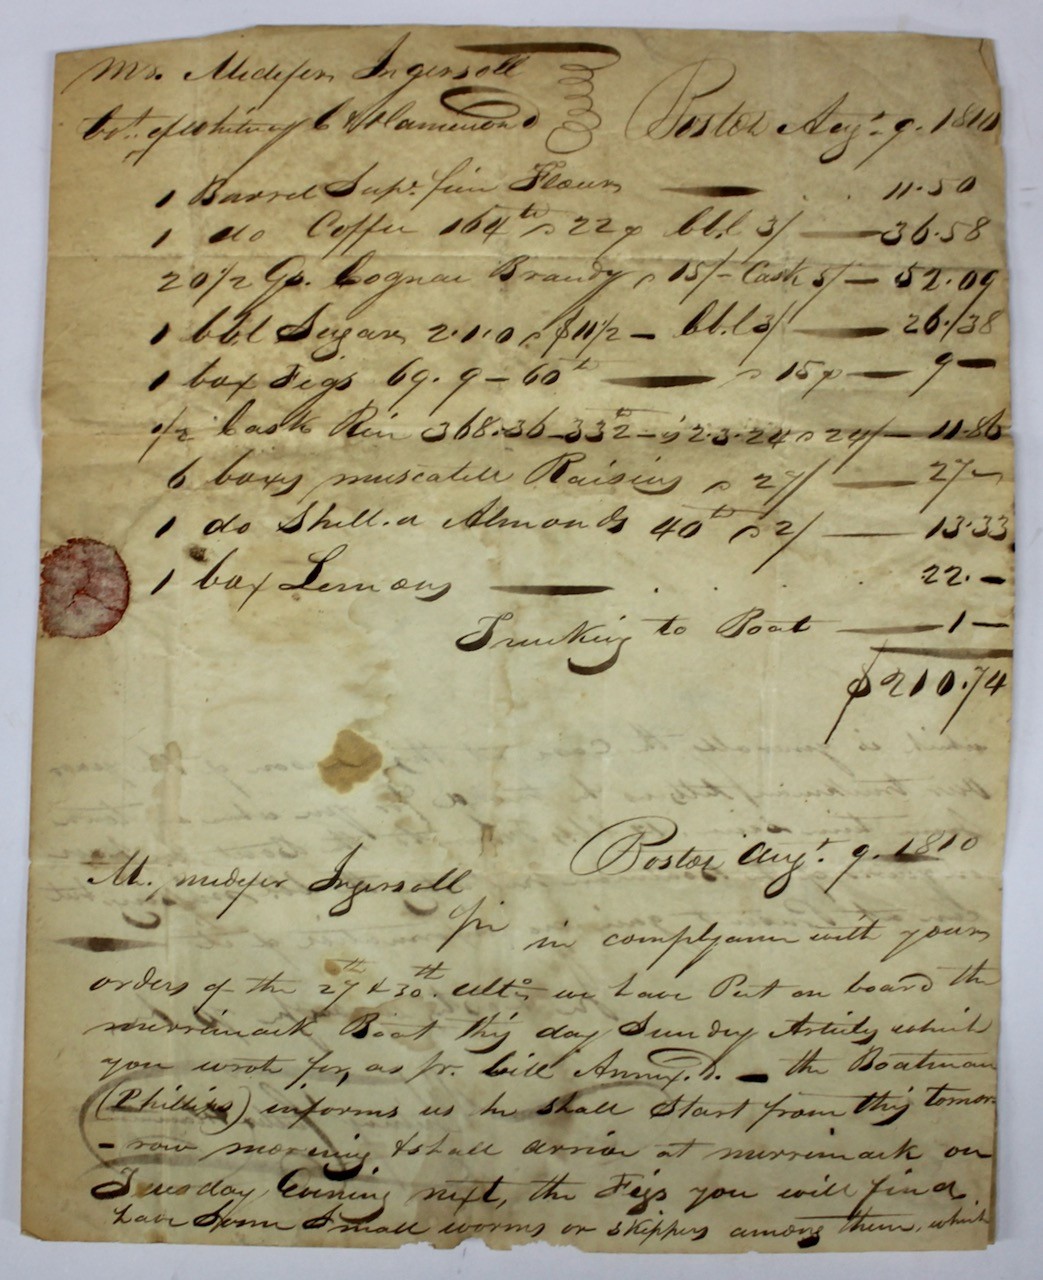 Mr. Medifer Ingersoll
bot. of Whitney C & Hammond Boston Augt. 9. 1810
1 Barrel Supr. fine Flour — 11.50
1 do Coffee 164 lb @ 22 bbl 3/ — 36.58
20 1/2 Gs. Cognac Brandy @ 15/ – Cask 5/ — 52.09
1 bbl Sugar 2.1.0 @ $11 1/2 – bbl 3/ — 26./38
1 box Figs 69. 9 – 60 lb — @ 15 — 9 —
1/2 Cask 368.36–332 – is 2.3.24 @ 24/ — 11.86
6 boxes muscatell Raisins @ 27/ — 27 –
1 do Shell.d Almonds 40 lb @ 2/ — 13.33
1 box Lemons — 22. –
Trucking to Boat — 1 —
$210.74
Boston Augt. 9. 1810
Mr. Medifer Ingersoll
Sir in complyance with your
orders of the 27th & 30th. Ulto. we have Put on board the
merrimack Boat this day Sundry Articles which
you wrote for, as pr. bill Annex.d. – the Boatman
(Phillips) informs us he shall Start from this tomor-
- row morning & shall arrive at merrimack on
Tuesday Evening next, the Figs you will find
have Some Small worms or skippers among them, which